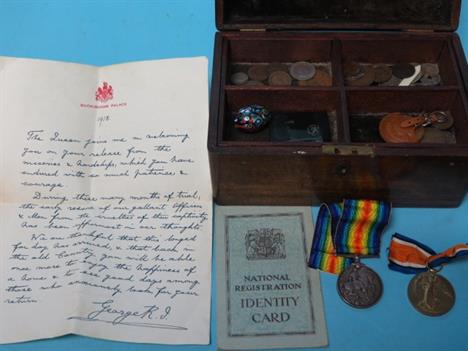 BUCKINGHAM PALACE
1918.
The Queen joins me in welcoming
you on your release from the
miseries & hardships, which you have
endured with so much patience &
courage.
During these many months of trial,
the early rescue of our gallant Officers
& Men from the cruelties of their captivity
has been uppermost in our thoughts.
We are thankful that this longed
for day has arrived, & that back in
the old Country, you will be able
once more to enjoy the happiness of
a home & to see good days among
those who anxiously look for your
return.
George R.I.
NATIONAL
REGISTRATION
IDENTITY
CARD